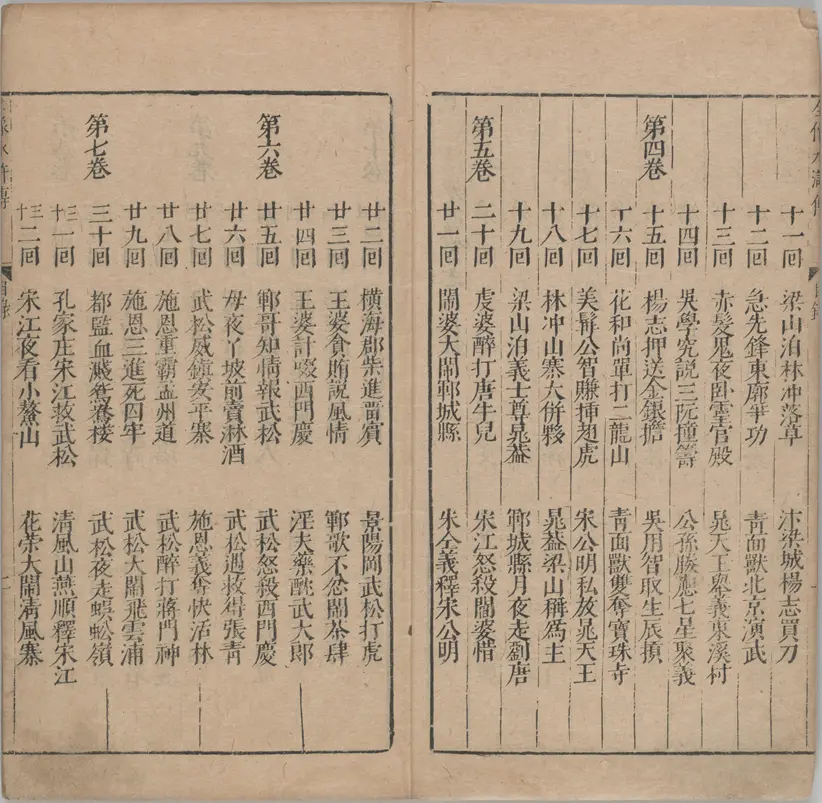 水滸傳 目錄
十一回 梁山泊林冲落草 汴梁城楊志買刀
十二回 急先鋒東廓爭功 青面獸北京演武
十三回 赤髮鬼夜卧霊官殿 晁天王舉義東溪村
十四回 吳學究説三阮撞籌 公孫勝應七星聚義
第四卷 十五回 楊志押送金銀擔 吳用智取生辰摃
十六回 花和尚單打二龍山 青面獸雙奪寶珠寺
十七回 美髯公智賺揷翅虎 宋公明私放晁天王
十八回 林冲山寨大併夥 晁蓋梁山稱爲主
十九回 梁山泊義士尊晁蓋 鄆城縣月夜走劉唐
第五卷 二十回 虔婆醉打唐牛兒 宋江怒殺閻婆惜
廿一回 閻婆大鬧鄆城縣 朱仝義釋宋公明
廿二回 橫海郡柴進畱賓 景陽岡武松打虎
廿三回 王婆貪賄説風情 鄆歌不忿閙茶肆
廿四回 王婆計啜西門慶 淫夫藥酖武大郎
第六卷 廿五回 鄆哥知情報武松 武松怒殺西門慶
廿六回 母夜丫坡前賣淋酒 武松遇救得張青
廿七回 武松威鎮安平寨 施恩義奪快活林
廿八回 施恩重霸孟州道 武松醉打蔣門神
廿九回 施恩三進死囚牢 武松大閙飛雲浦
第七卷 三十回 都監血濺鴛鴦楼 武松夜走蜈蚣嶺
三十一回 孔家庄宋江救武松 清風山燕順釋宋江
三十二回 宋江夜看小鰲山 花荣大鬧清風寨
水滸傳 目錄